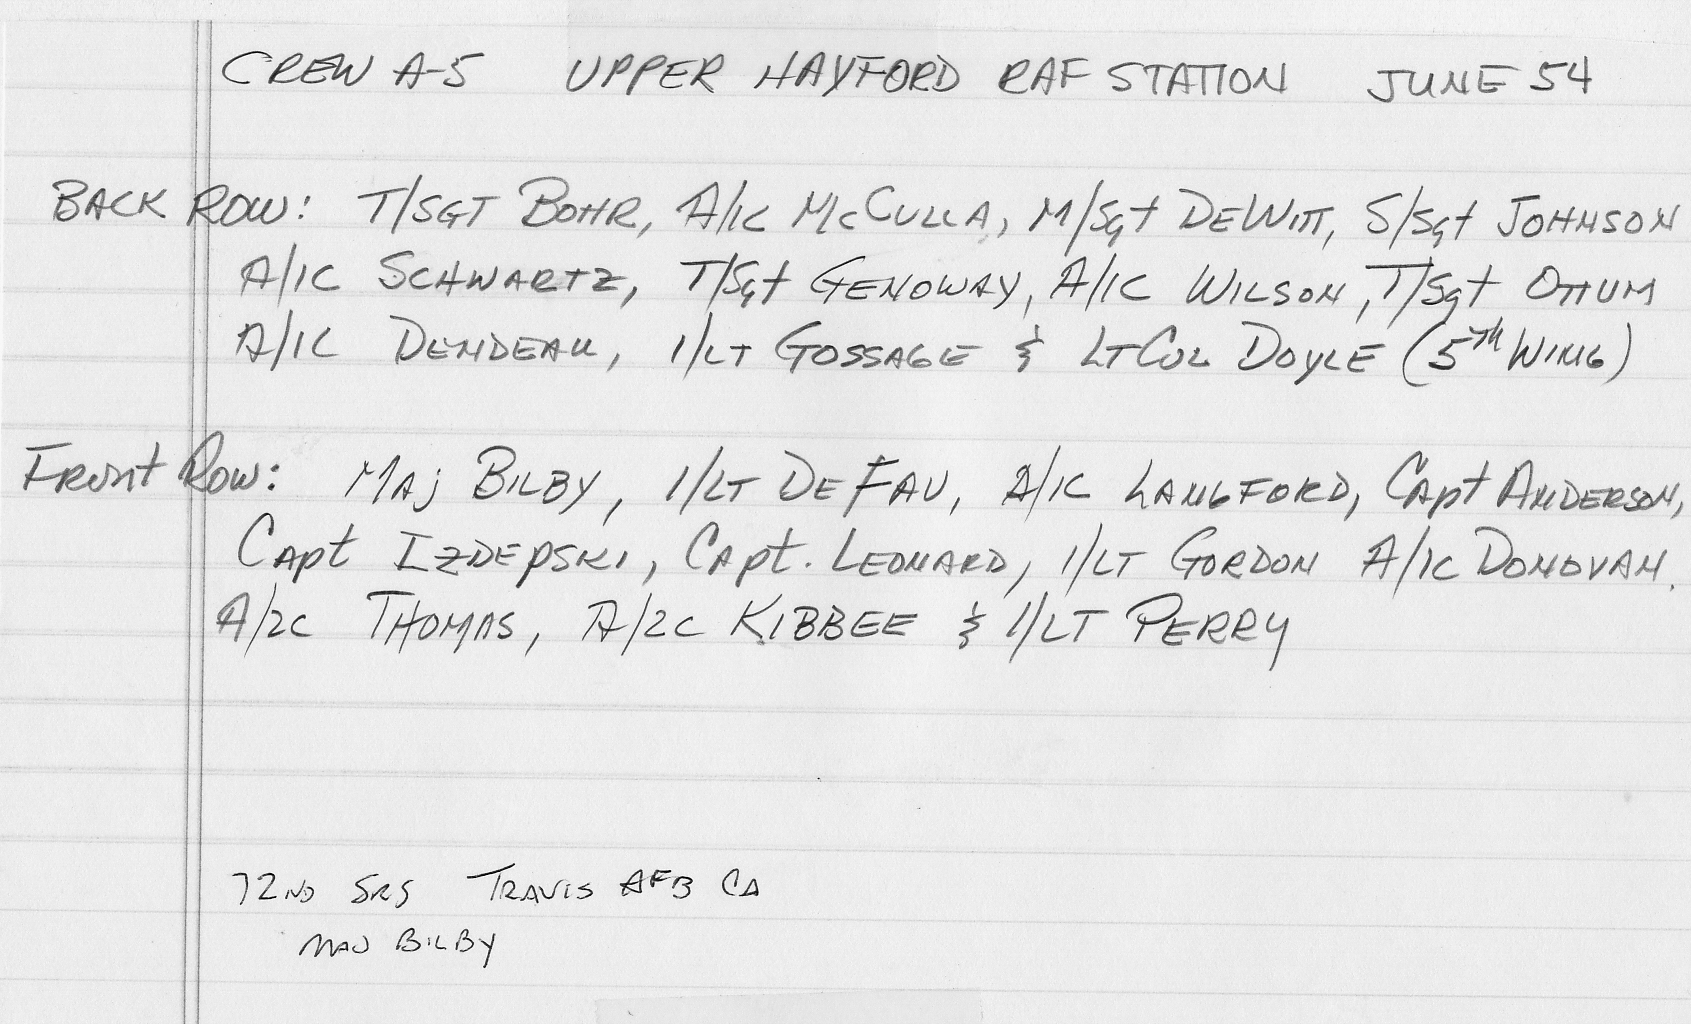 CREW A-5 UPPER HAYFORD RAF STATION JUNE 54
BACK ROW: T/SGT BOHR, A/1C McCULLA, M/Sgt DEWITT, S/Sgt JOHNSON
A/1C SCHWARTZ, T/Sgt GENOWAY, A/1C WILSON, T/Sgt OTTUM
A/1C DENDEAU, 1/LT GOSSAGE & LT COL DOYLE (5TH WING)
FRONT ROW: MAJ BILBY, 1/LT DE FAU, A/1C LANGFORD, Capt ANDERSON,
Capt IZDEPSKI, Capt. LEONARD, 1/LT GORDON A/1C DONOVAN.
A/2C THOMAS, A/2C KIBBEE & 1/LT PERRY
72ND SRS TRAVIS AFB CA
MAJ BILBY